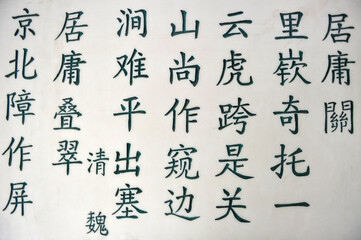 居庸關
里嵚奇托一
云虎跨是关
山尚作窥边
涧难平出塞
清魏
居庸叠翠
京北障作屏